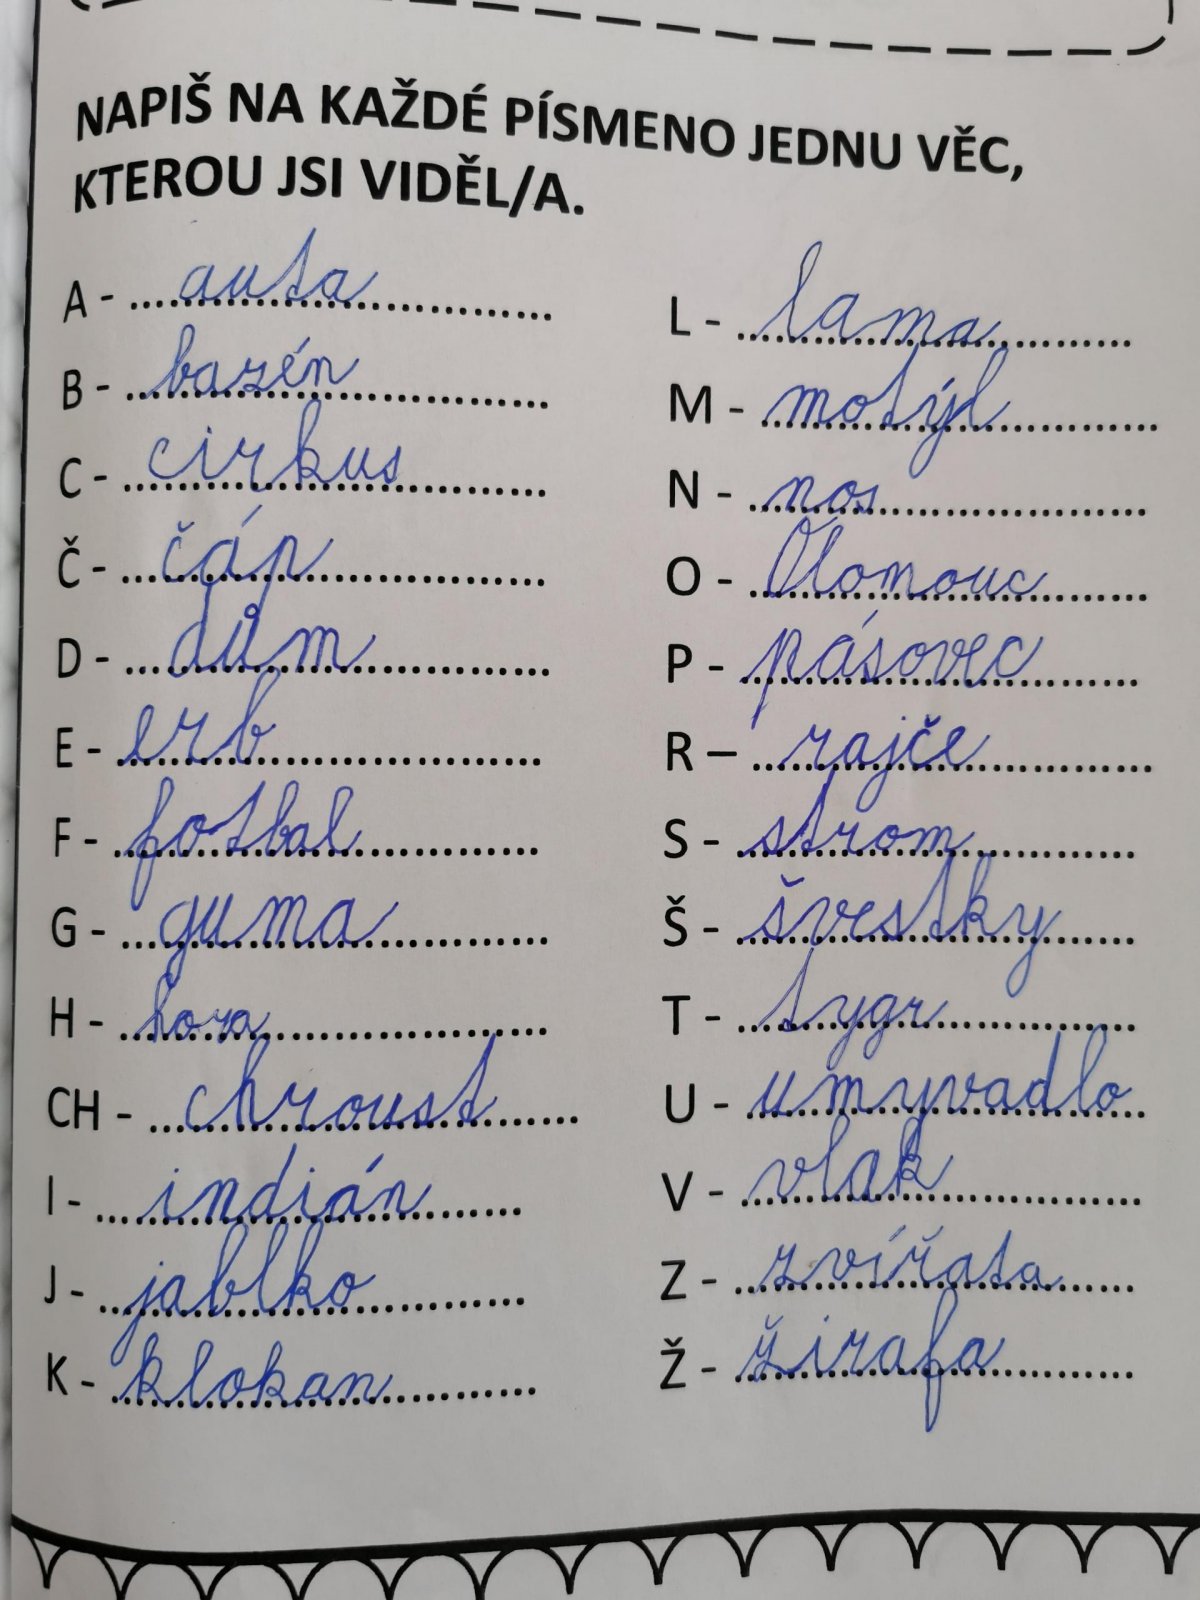 NAPIŠ NA KAŽDÉ PÍSMENO JEDNU VĚC,
KTEROU JSI VIDĚL/A.
A - auta
B - bazén
C - cirkus
Č - čáp
D - dům
E - erb
F - fotbal
G - guma
H - hora
CH - chroust
I - indián
J - jablko
K - klokan
L - lama
M - motýl
N - nos
O - Olomouc
P - pásovec
R – rajče
S - strom
Š - švestky
T - tygr
U - umyvadlo
V - vlak
Z - zvířata
Ž - žirafa